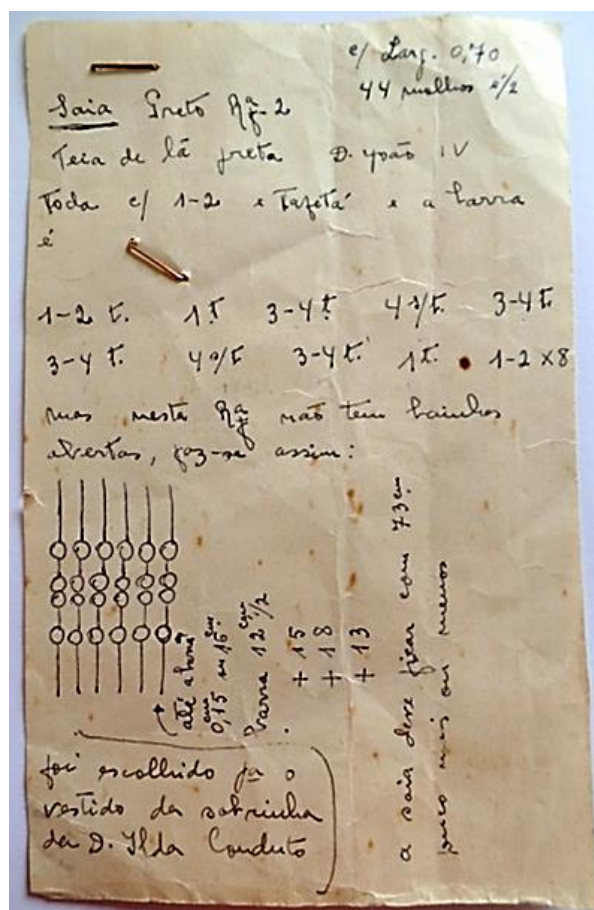 c/ Larg. 0,70
44 molhos e 1/2
Saia Preto Rfª-2
Teia de lã preta D. João IV
Toda c/ 1-2 e Tafetá e a barra
é
1-2 t. 1 t 3-4 t. 4 s/t. 3-4 t.
3-4 t. 4 s/t 3-4 t. 1 t. 1-2 x8
mas nesta Rfª não tem bainhas
abertas, faz-se assim:
até a barra
0,15 cm 15 cm
barra 12 cm 1/2
+ 15
+ 18
+ 13
a saia deve ficar com 73 cm
pouco mais ou menos
foi escolhido pª o
vestido da sobrinha
da D. Ilda Conduto